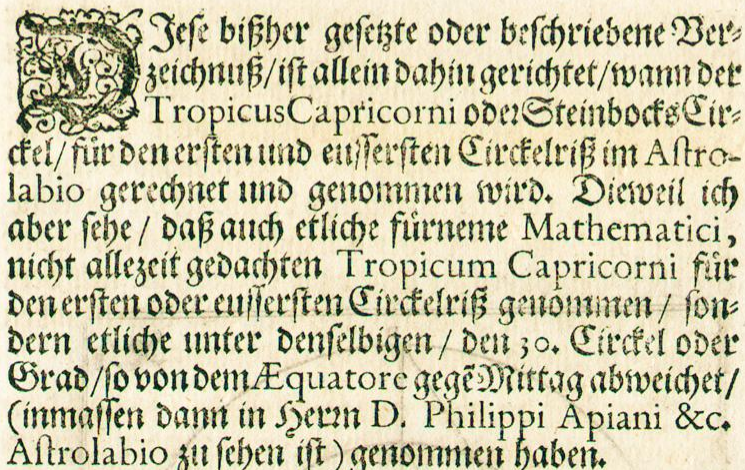 DJese bißher gesetzte oder beschriebene Ver-
zeichnuß/ist allein dahin gerichtet/wann der
Tropicus Capricorni oder Steinbocks Cir-
ckel/für den ersten und eussersten Circkelriß im Astro-
labio gerechnet und genommen wird. Dieweil ich
aber sehe/ daß auch etliche fürneme Mathematici,
nicht allezeit gedachten Tropicum Capricorni für
den ersten oder eussersten Circkelriß genommen/ son-
dern etliche unter denselbigen/ den 30. Circkel oder
Grad/so von dem Æquatore gegẽ Mittag abweichet/
(inmassen dann in Herrn D. Philippi Apiani &c.
Astrolabio zu sehen ist) genommen haben.